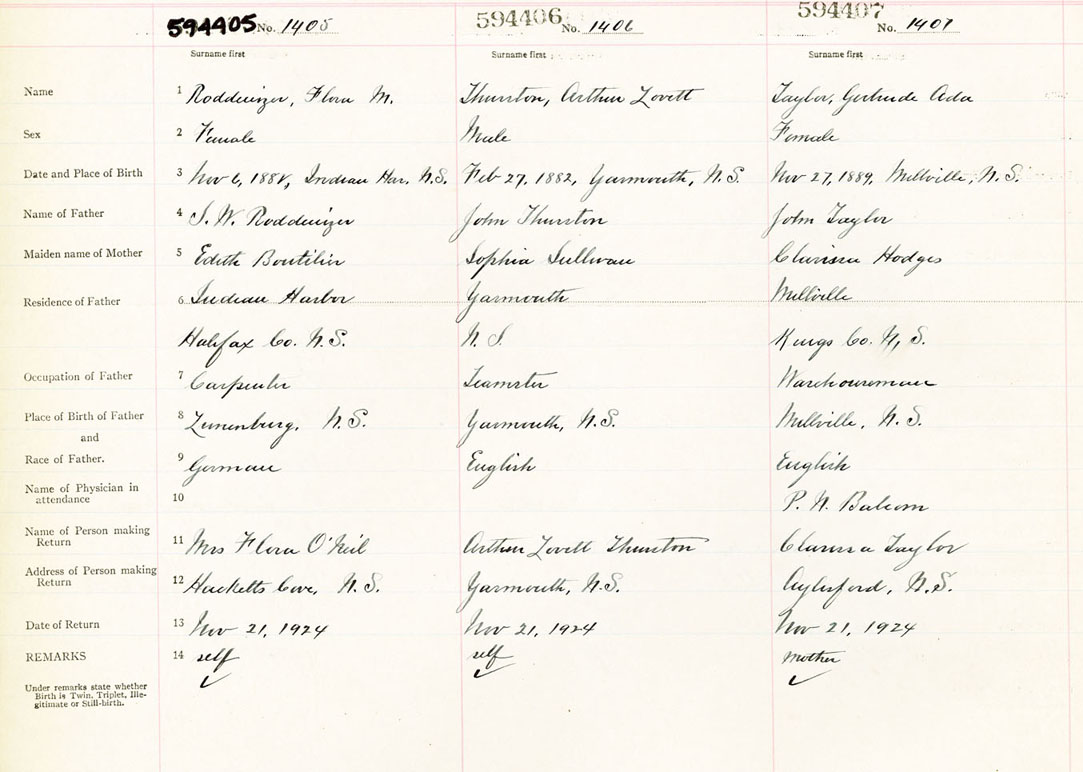 594405 No. 1405 594406 No. 1406 594407 No. 1407
Surname first Surname first Surname first
Name 1 Roddenizer, Flora M. Thurston, Arthur Lovett Taylor, Gertrude Ada
Sex 2 Female Male Female
Date and Place of Birth 3 Nov 6, Indian Har. N.S. Feb 27, 1882, Yarmouth, N.S. Nov 27, 1889, Millville, N.S.
Name of Father 4 S. W. Roddenizer John Thurston John Taylor
Maiden name of Mother 5 Edith Boutilier Sophia Sullivan Clarissa Hodges
Residence of Father 6 Indian Harbor Yarmouth Millville
Halifax Co. N.S. N.S. Kings Co. N.S.
Occupation of Father 7 Carpenter Teamster Warehouseman
Place of Birth of Father 8 Lunenburg, N.S. Yarmouth, N.S. Millville, N.S.
and
Race of Father. 9 German English English
Name of Physician in
attendance 10 P. N. Balcom
Name of Person making
Return 11 Mrs Flora O'Neil Arthur Lovett Thurston Clarissa Taylor
Address of Person making
Return 12 Hacketts Cove, N.S. Yarmouth, N.S. Aylesford, N.S.
Date of Return 13 Nov 21, 1924 Nov 21, 1924 Nov 21, 1924
REMARKS 14 self self mother
Under remarks state whether
Birth is Twin, Triplet, Ille-
gitimate or Still-birth.